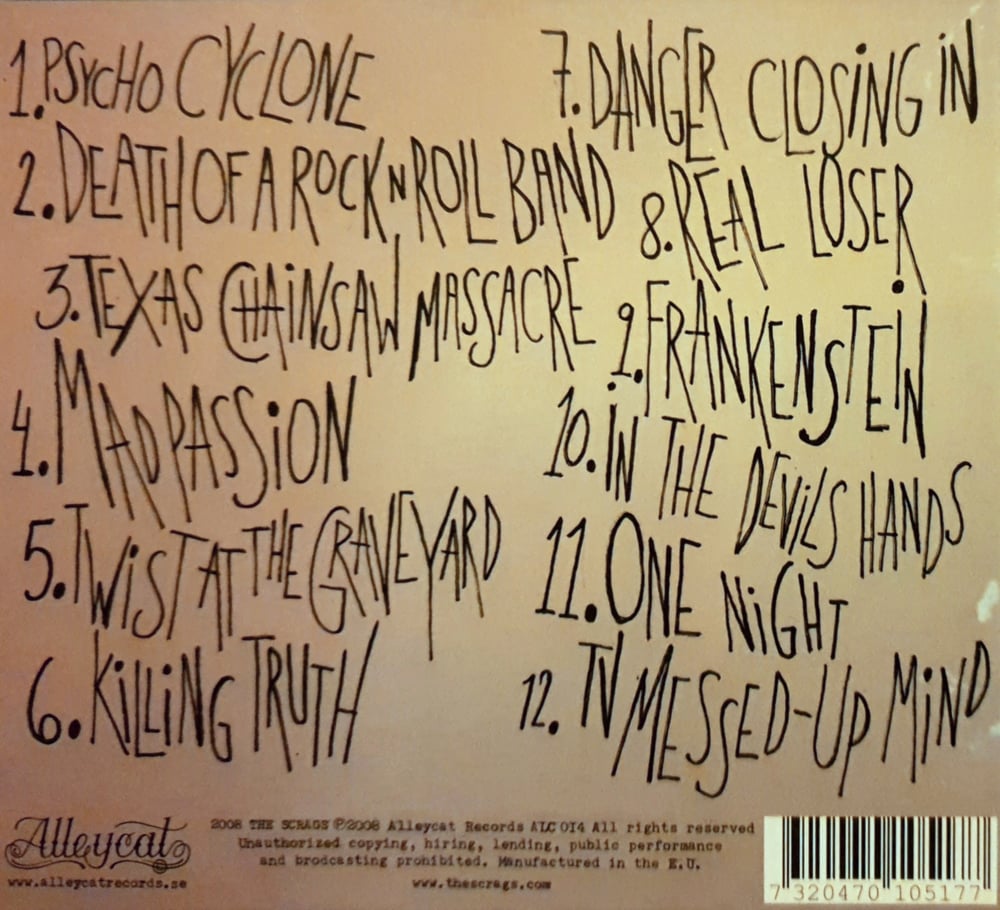 1. PSYCHO CYCLONE
2. DEATH OF A ROCK N ROLL BAND
3. TEXAS CHAINSAW MASSACRE
4. MAD PASSION
5. TWIST AT THE GRAVEYARD
6. KILLING TRUTH
7. DANGER CLOSING IN
8. REAL LOSER
9. FRANKENSTEIN
10. IN THE DEVILS HANDS
11. ONE NIGHT
12. TV MESSED-UP MIND
Alleycat
www.alleycatrecords.se
2008 THE SCRAGS ℗2008 Alleycat Records ALC 014 All rights reserved
Unauthorized copying, hiring, lending, public performance
and brodcasting prohibited. Manufactured in the E.U.
www.thescrags.com
7 320470 105177